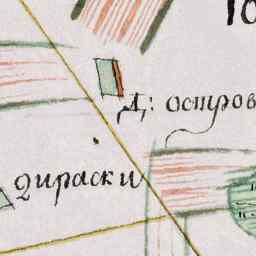 Д: остров
дираски